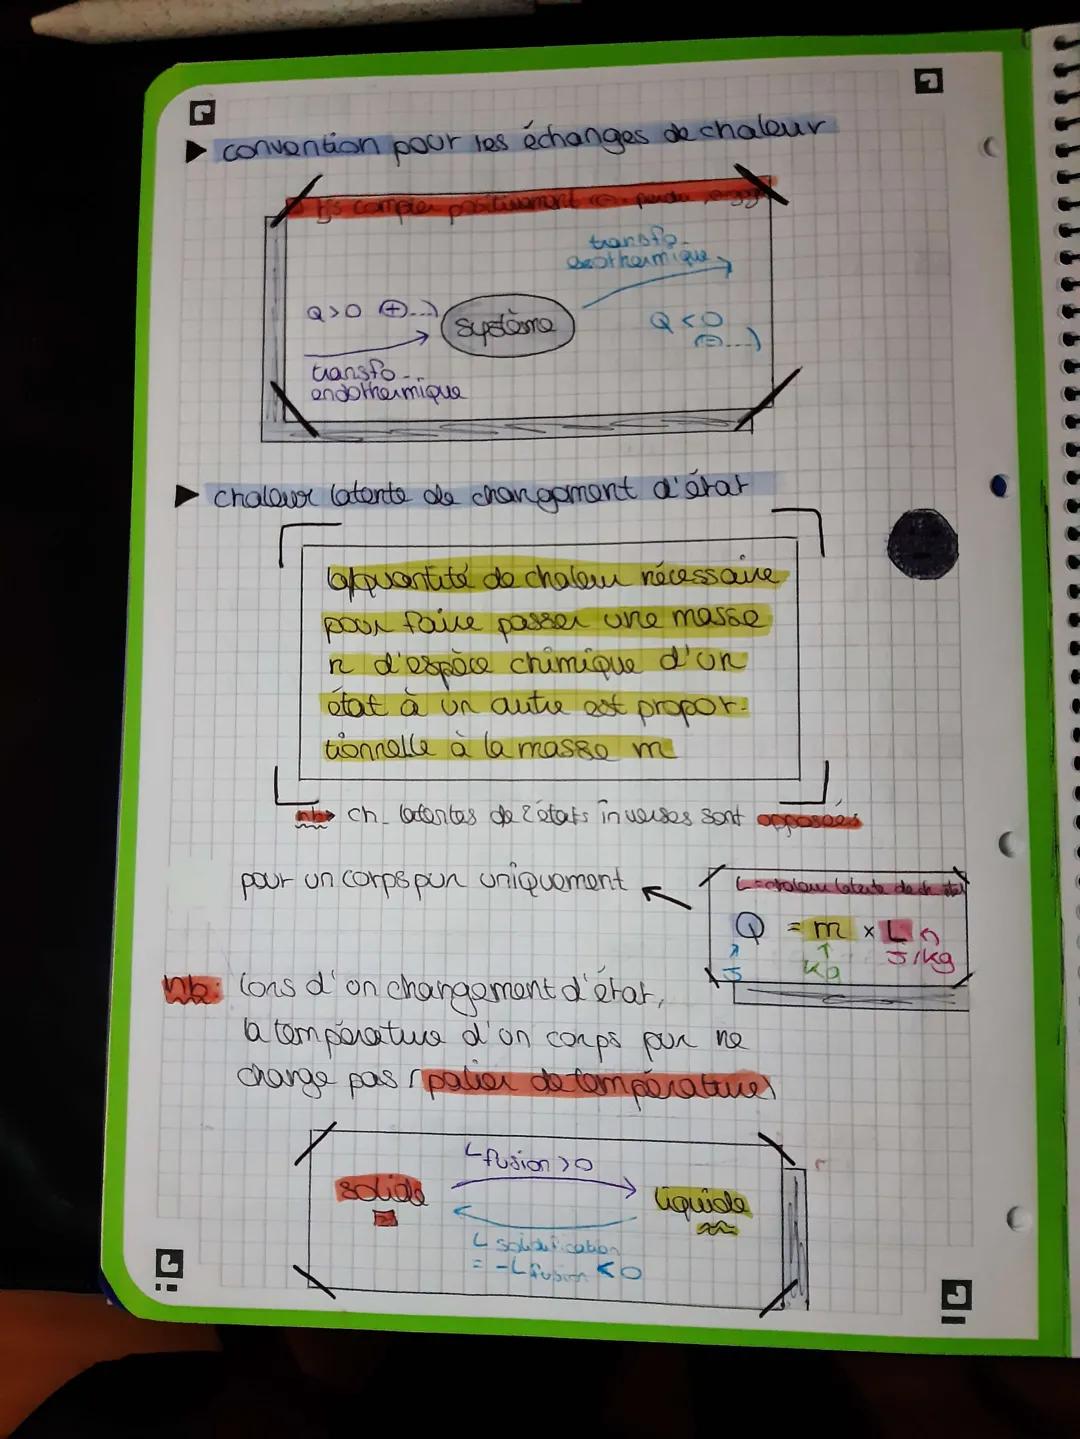 convention pour les échanges de chaleur
compter positivement
transfo.
exothermique
Q>0 (+...)
système
Q<0
(-...)
transfo...
endothermique
chaleur latente de changement d'état
la quantité de chaleur nécessaire
pour faire passer une masse
n d'espèce chimique d'un
état à un autre est propor-
tionnelle à la masse m
nb→ ch. latentes de 2 états inverses sont opposées
pour un corps pur uniquement
L = chaleur latente de ch. état
Q = m x L
J
kg
J/kg
nb: lors d'un changement d'état,
la température d'un corps pur ne
change pas (palier de température)
L fusion >0
solide
liquide
L solidification
= -L fusion <0